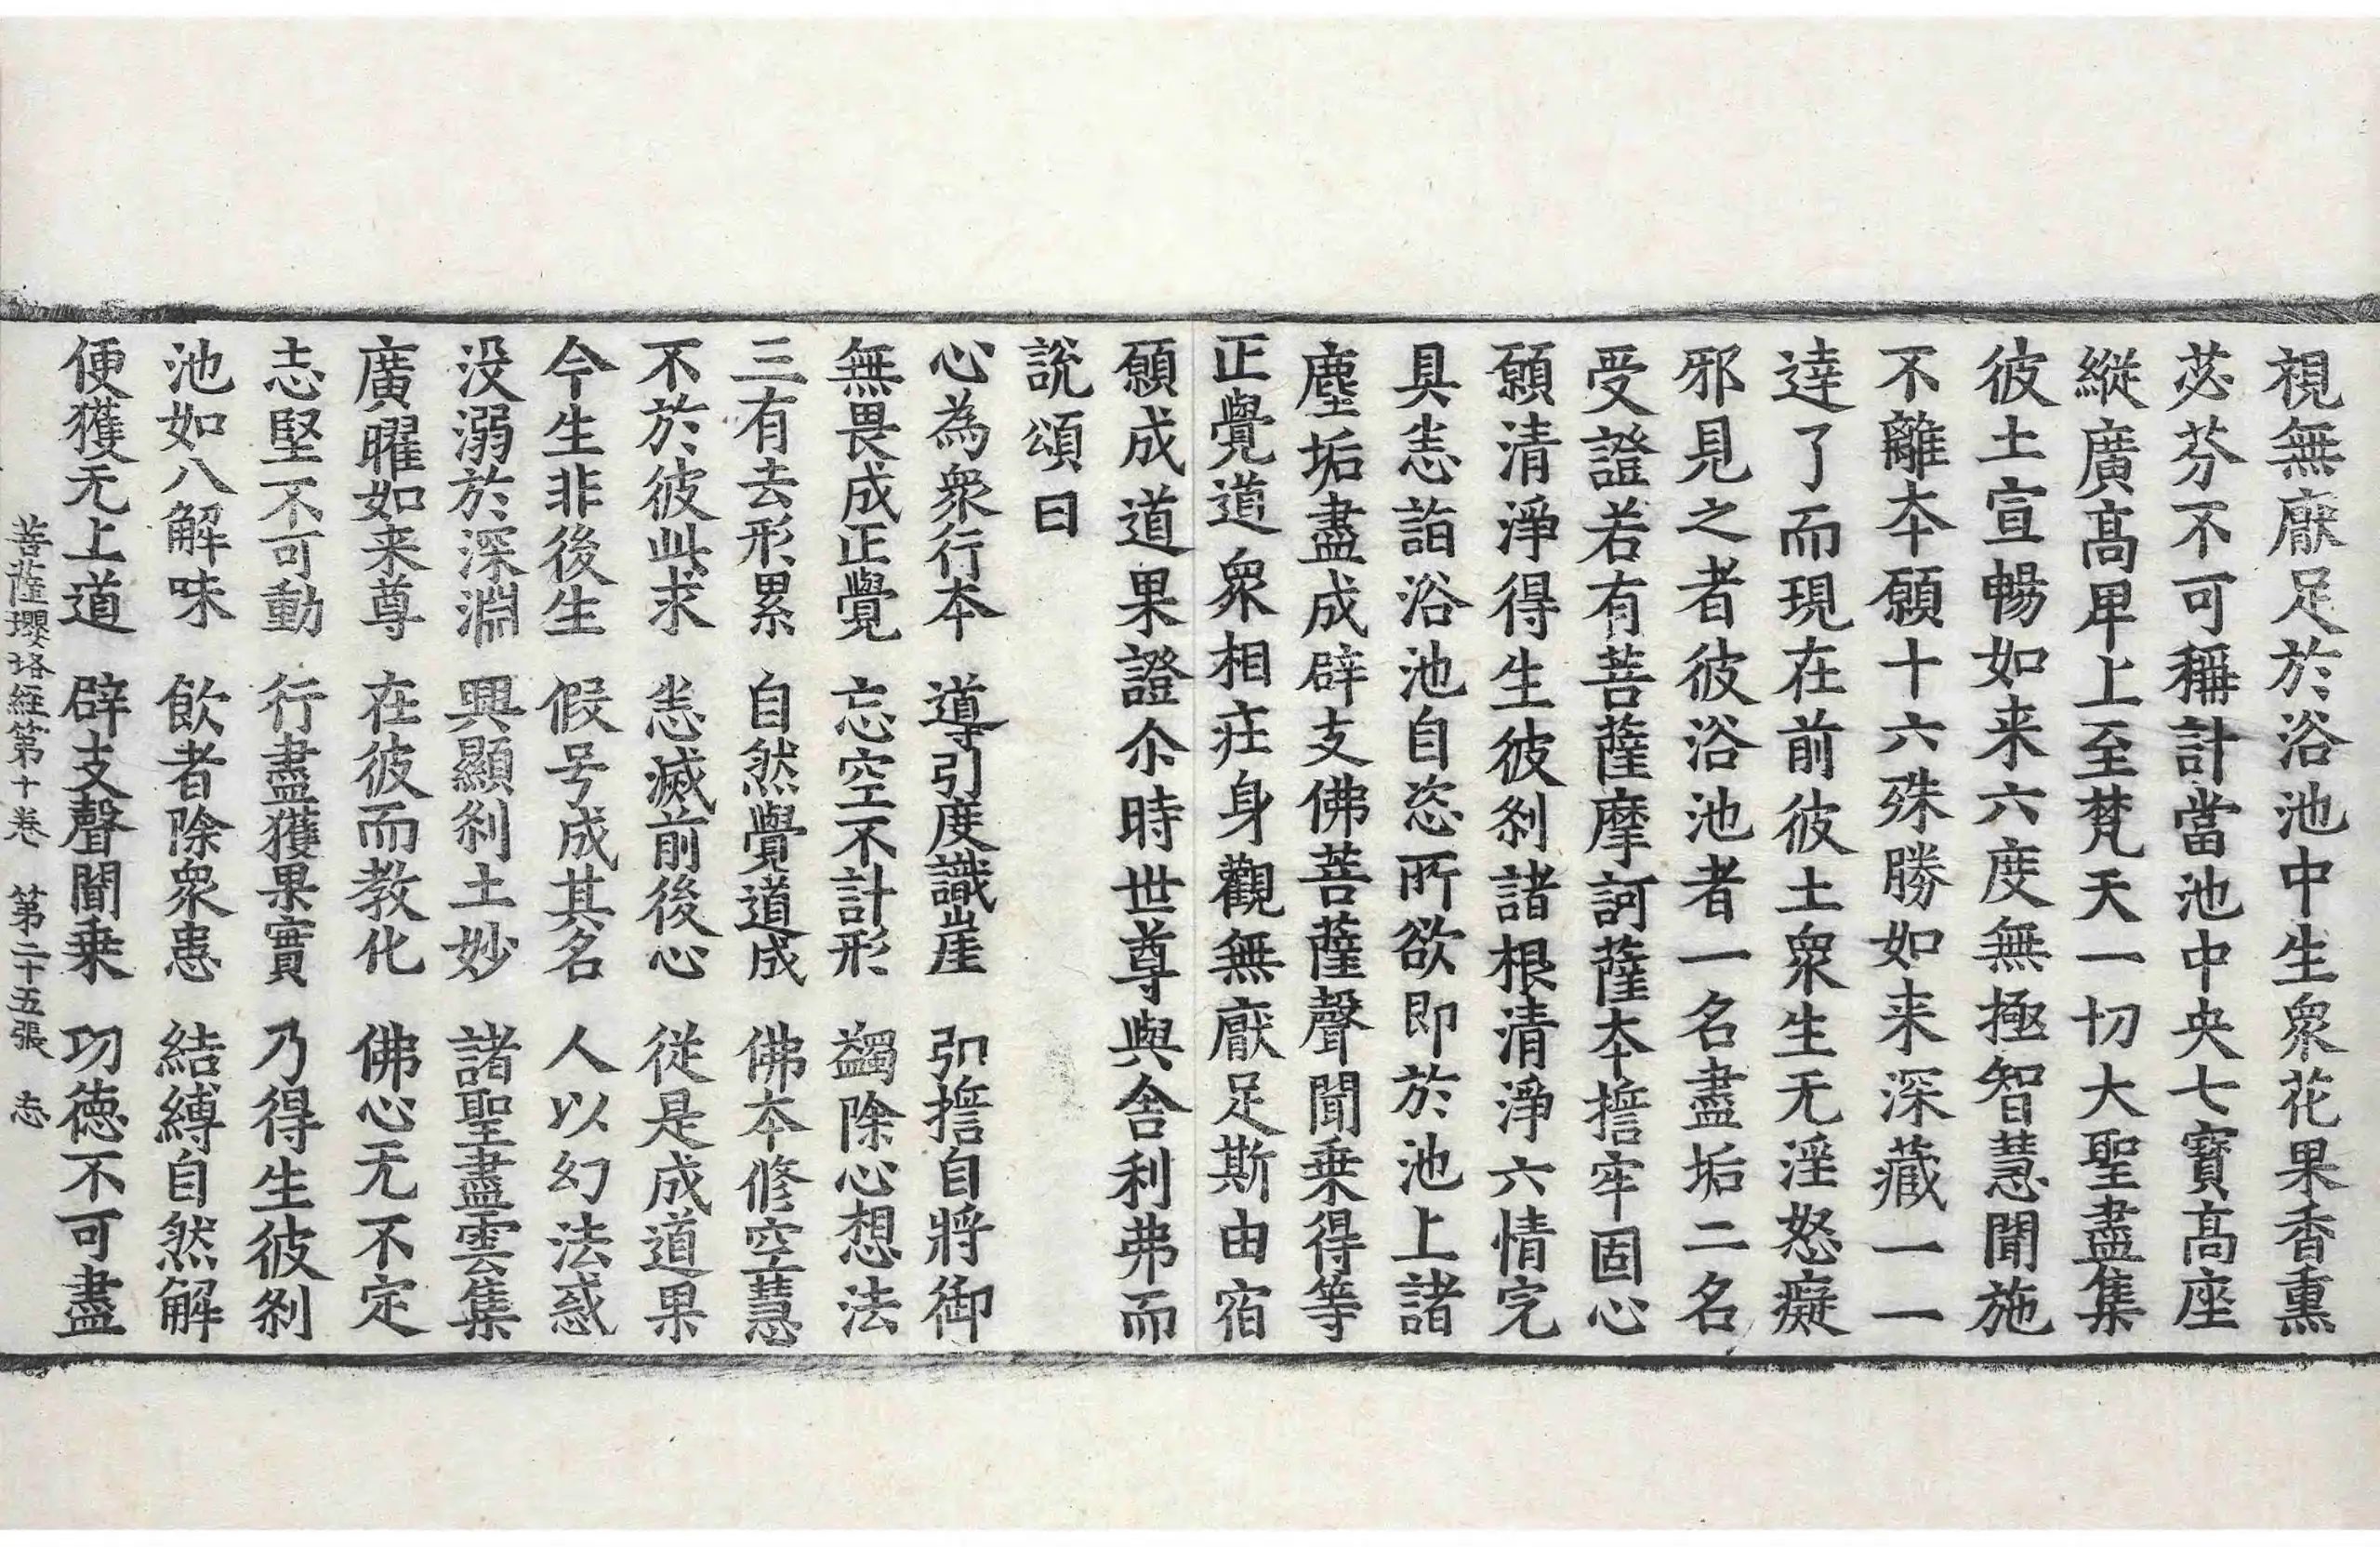 視無厭足於浴池中生衆花果香熏
苾芬不可稱計當池中央七寶髙座
縱廣髙㽺上至梵天一切大聖盡集
彼土宣暢如来六度無極智慧聞施
不離夲願十六殊勝如来深藏一一
逹了而現在前彼土衆生无淫怒癡
邪見之者彼浴池者一名盡垢二名
受證若有菩薩摩訶薩夲擔牢固心
願清淨得生彼刹諸根清淨六情完
具恙詣浴池自恣所欲即於池上諸
塵垢盡成辟支佛菩薩聲聞乗得等
正覺道衆相庄身觀無厭足斯由宿
願成道果證尒時世尊與舎利弗而
說頌曰
心為衆行夲　導引度識崖　引擔自將御
無畏成正覺　忘空不計形　蠲除心想法
三有去形累　自然覺道成　佛夲修空慧
不於彼此求　恙滅前後心　從是成道果
今生非後生　假号成其名　人以幻法惑
没溺於深淵　興顯刹土妙　諸聖盡雲集
廣曜如来尊　在彼而教化　佛心无不定
志堅不可動　行盡獲果實　乃得生彼刹
池如八解味　飲者除衆患　結縛自然解
便獲无上道　辟支聲聞乗　功徳不可盡
菩薩瓔珞經第十卷　第二十五張　志